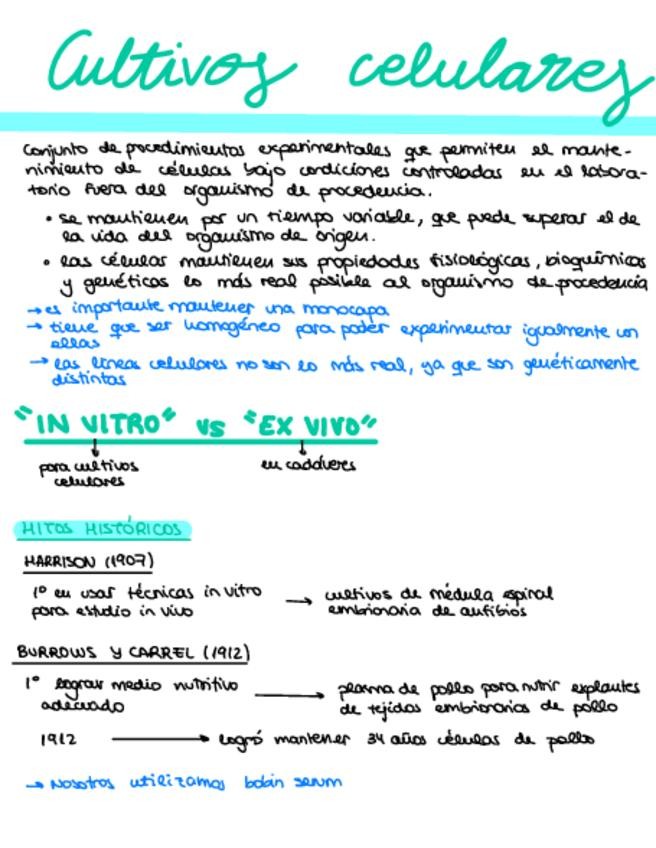 Cultivos celulares
Conjunto de procedimientos experimentales que permiten el mante-
nimiento de células bajo condiciones controladas en el labora-
torio fuera del organismo de procedencia.
• se mantienen por un tiempo variable, que puede superar el de
la vida del organismo de origen.
• las células mantienen sus propiedades fisiológicas, bioquímicas
y genéticas lo más real posible al organismo de procedencia
→ es importante mantener una monocapa
→ tiene que ser homogéneo para poder experimentar igualmente con
ellas
→ las líneas celulares no son lo más real, ya que son genéticamente
distintas
"IN VITRO" vs "EX VIVO"
para cultivos
celulares
en cadáveres
HITOS HISTÓRICOS
HARRISON (1907)
1º en usar técnicas in vitro → cultivos de médula espinal
para estudio in vivo embrionaria de anfibios
BURROWS Y CARREL (1912)
1º lograr medio nutritivo → plasma de pollo para nutrir explantes
adecuado de tejidos embrionarios de pollo
1912 → logró mantener 34 años células de pollo
→ Nosotros utilizamos bobin serum